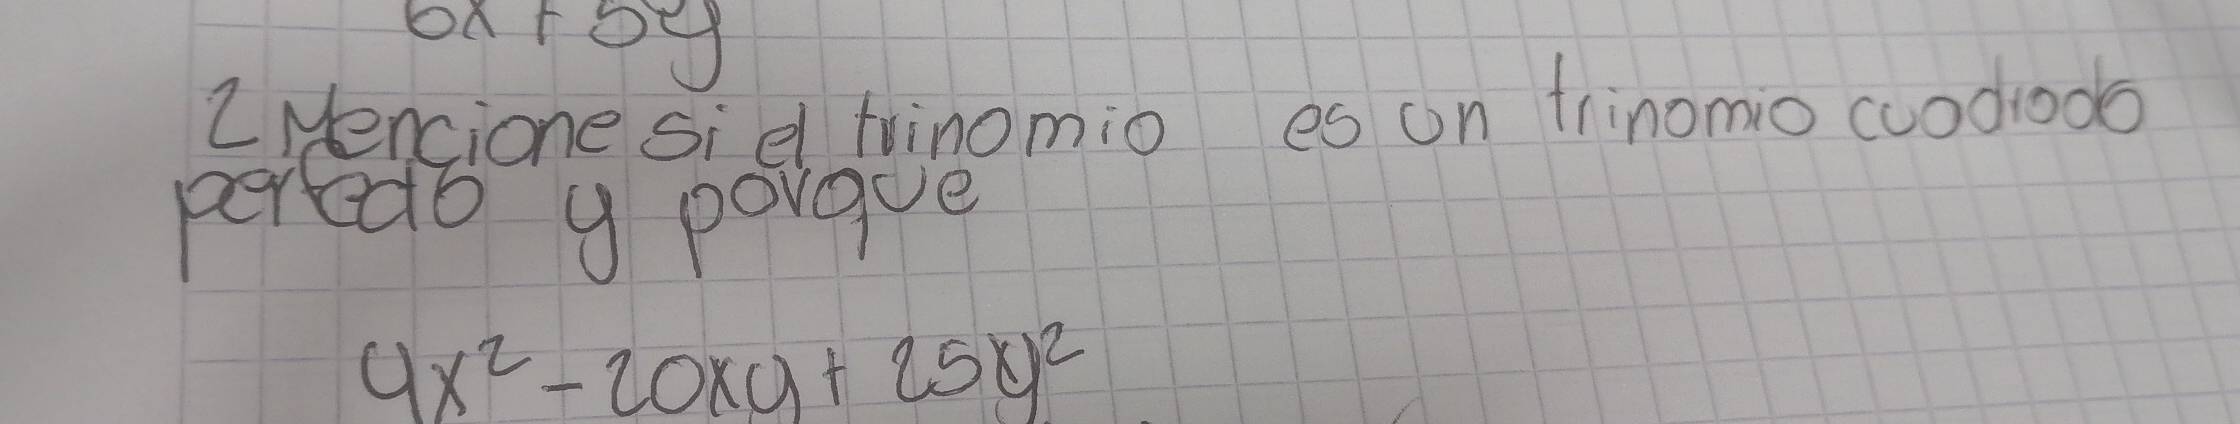 6x + 5y
2 Mencione si el trinomio es un trinomio cuadrado
perfecto y porque
4x² - 20xy + 25y²